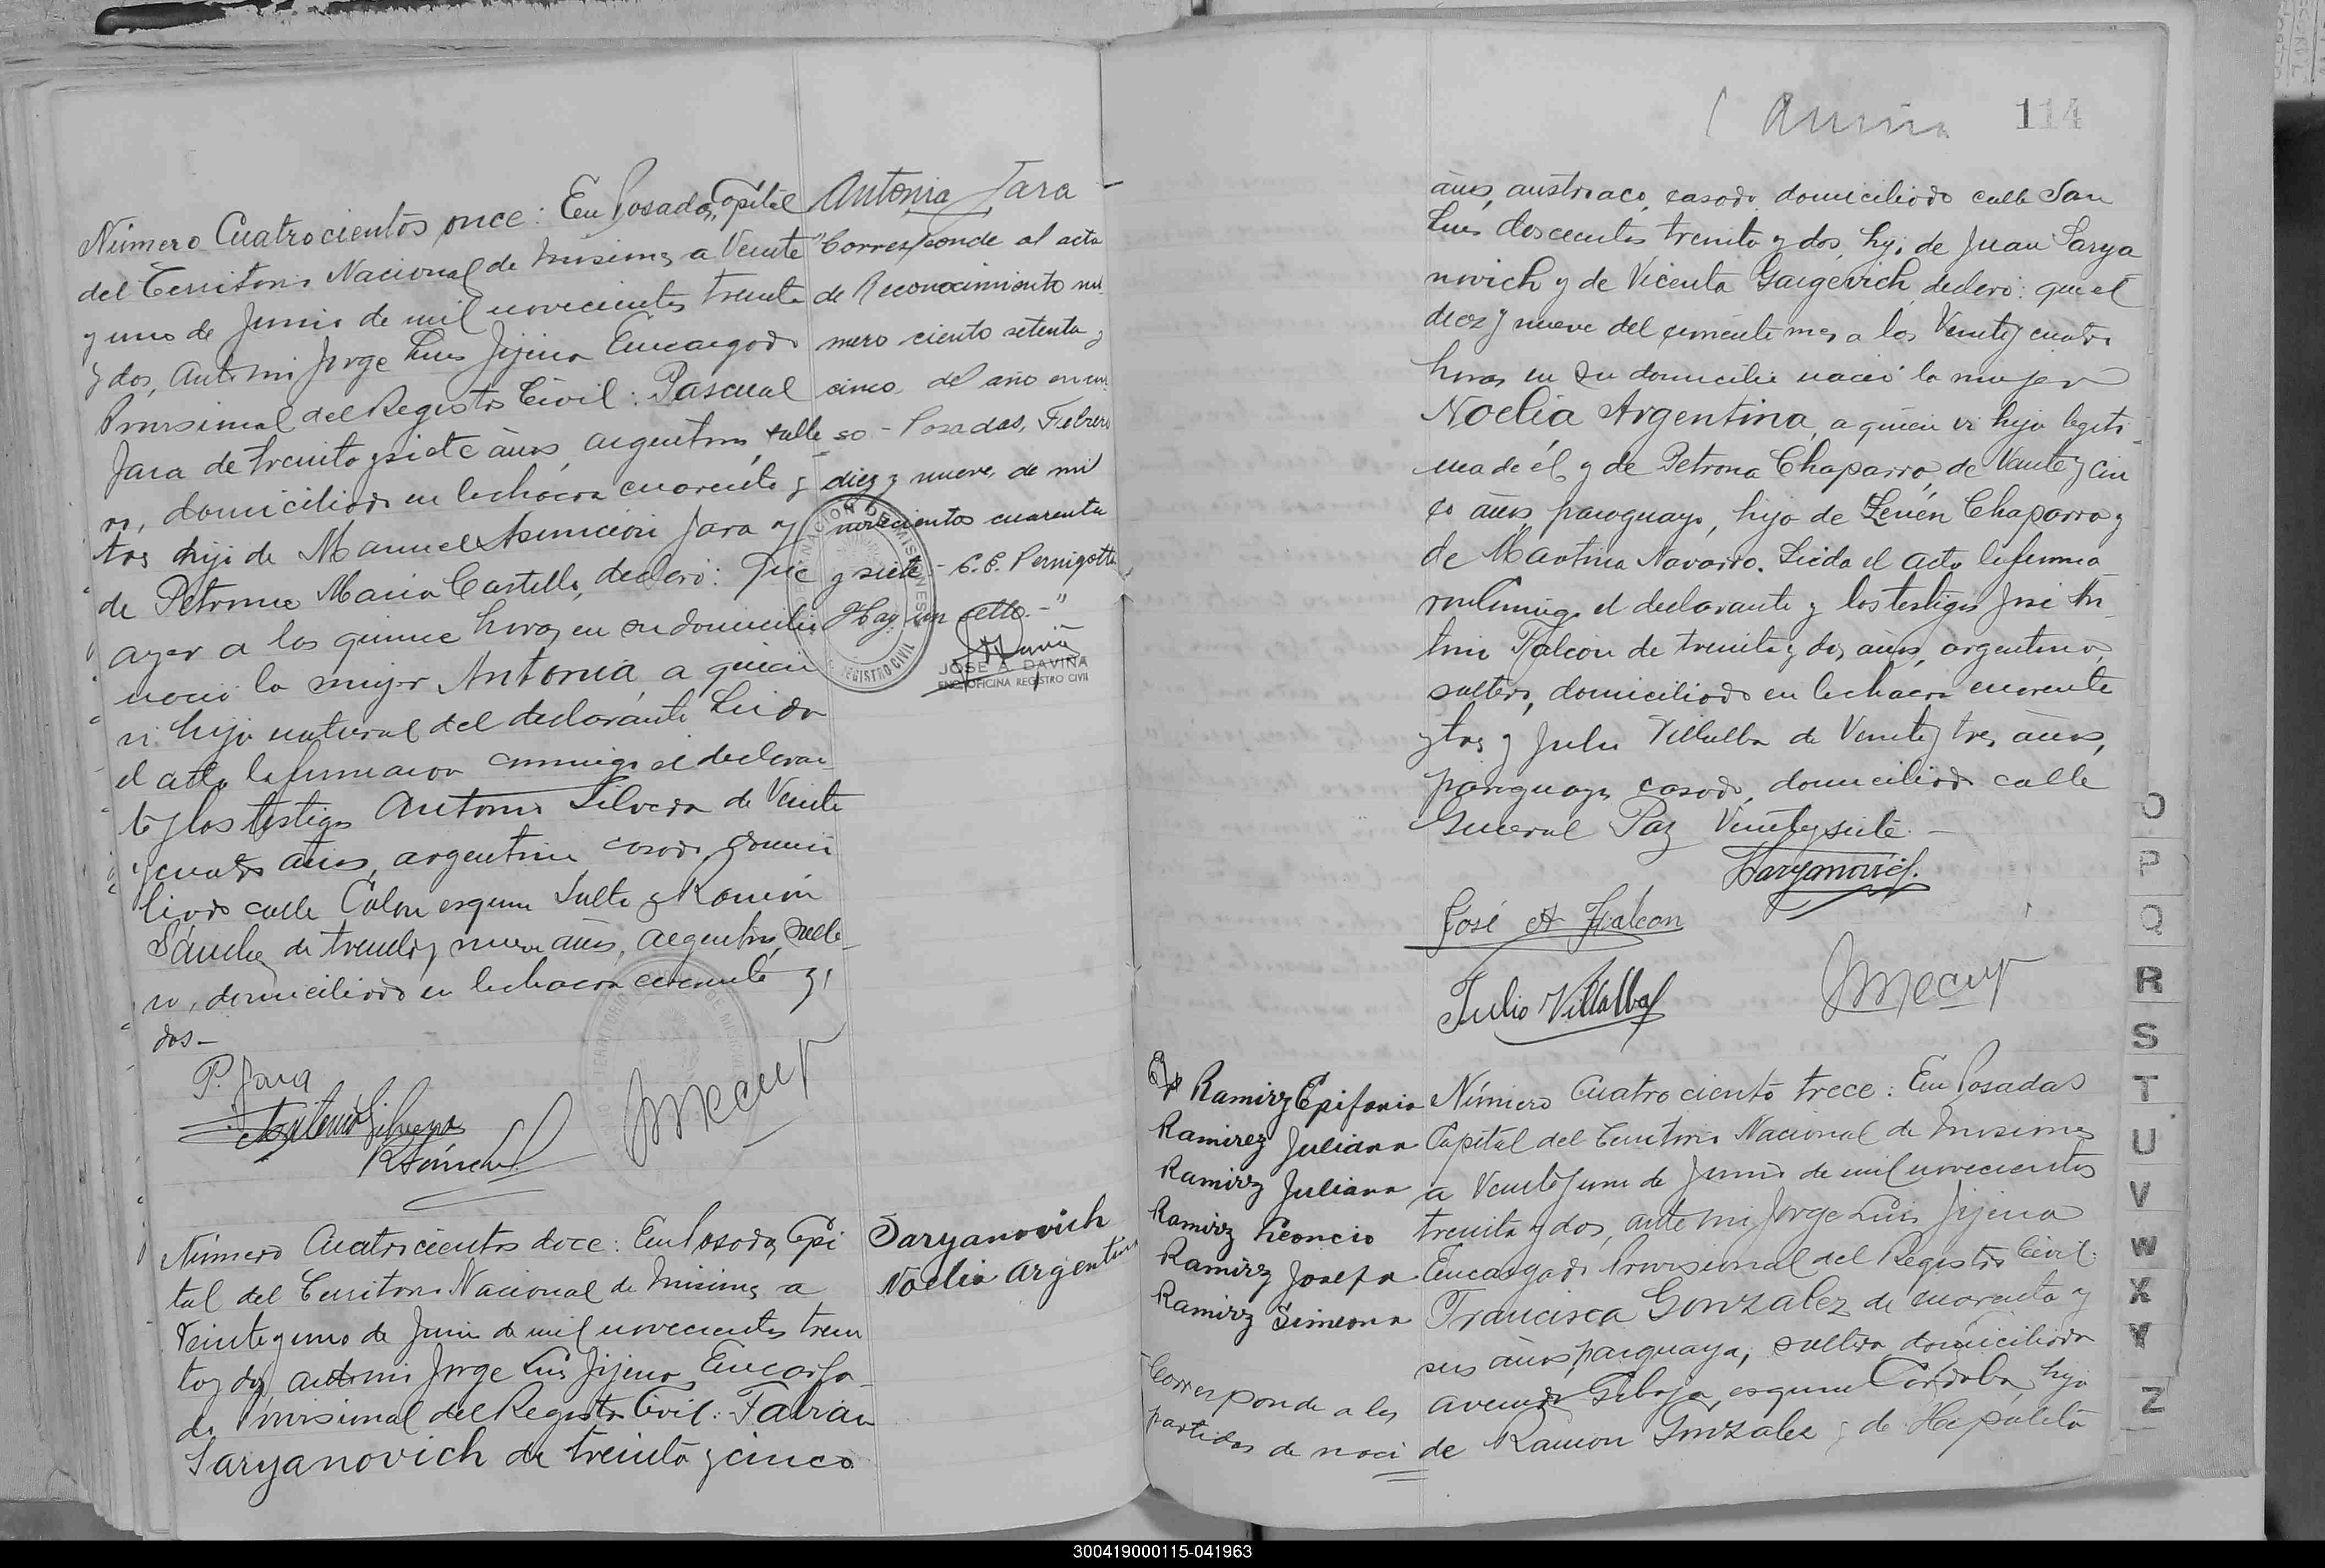 Número Cuatrocientos once: En Posadas, Capital
del Territorio Nacional de Misiones a Veinte
y uno de Junio de mil novecientos treinta
y dos, Ante mi Jorge Luis Jijena Encargado
Provisional del Registro Civil: Pascual
Jara de treinta y siete años, argentino, solte
ro, domiciliado en la chacra cuarenta y
tres hijo de Manuel Asunción Jara y
de Petrona Maria Castillo, declaró: Que
ayer a las quince horas en su domicilio
nació la mujer Antonia, a quien
vi hija natural del declarante Leida
el acta la firmaron conmigo el declaran
te y los testigos Antonio Silvera de Veinte
y cuatro años, argentino casado, domici
liado calle Colon esquina Salta y Ramón
Sánchez de treinta y nueve años, argentino, solte
ro, domiciliado en la chacra cuarenta y
dos—
P. Jara
Antonio Silvera
Antonia Jara
"Corresponde al acta
de Reconocimiento nú
mero ciento setenta y
cinco del año en cur
so - Posadas, Febrero
diez y nueve de mil
novecientos cuarenta
y siete - C.C. Pernigotti
Hay un sello.-"
JOSE A. DAVIÑA
ENC. OFICINA REGISTRO CIVIL
Número Cuatrocientos doce: En Posadas, Capi
tal del Territorio Nacional de Misiones a
Veinte y uno de Junio de mil novecientos trein
ta y dos, ante mi Jorge Luis Jijena Encarga
do Provisional del Registro Civil: Fabian
Saryanovich de treinta y cinco
Saryanovich
Noelia Argentina
114
años, austriaco, casado, domiciliado calle San
Luis doscientos treinta y dos, hijo de Juan Sarya
novich y de Vicenta Gargevich, declaró: que el
diez y nueve del corriente mes a las Veinte y cuatro
horas en su domicilio nació la mujer
Noelia Argentina, a quien vi hija legíti
ma de él y de Petrona Chaparro, de Veinte y cin
co años, paraguaya, hija de Zenén Chaparro y
de Martina Navarro. Leida el acta la firma
ron conmigo el declarante y los testigos José An
tonio Falcon de treinta y dos años, argentino,
soltero, domiciliado en la chacra cuarenta
y tres y Julio Villalba de Veinte y tres años,
paraguayo, casado, domiciliado calle
General Paz Veinte y siete.—
Saryanovich.
José A Falcon
Julio Villalba
Ramirez Epifania
Ramirez Juliana
Ramirez Juliana
Ramirez Leoncio
Ramirez Josefa
Ramirez Simeona
Corresponde a las
partidas de naci
Número Cuatrociento trece: En Posadas
Capital del Territorio Nacional de Misiones
a Veinte y uno de Junio de mil novecientos
treinta y dos, ante mi Jorge Luis Jijena
Encargado Provisional del Registro Civil:
Francisca Gonzalez de cuarenta y
seis años, paraguaya, soltera, domiciliada
avenida esquina Córdoba, hija
de Ramon Gonzalez y de Hipólita
O
P
Q
R
S
T
U
V
W
X
Y
Z
300419000115-041963